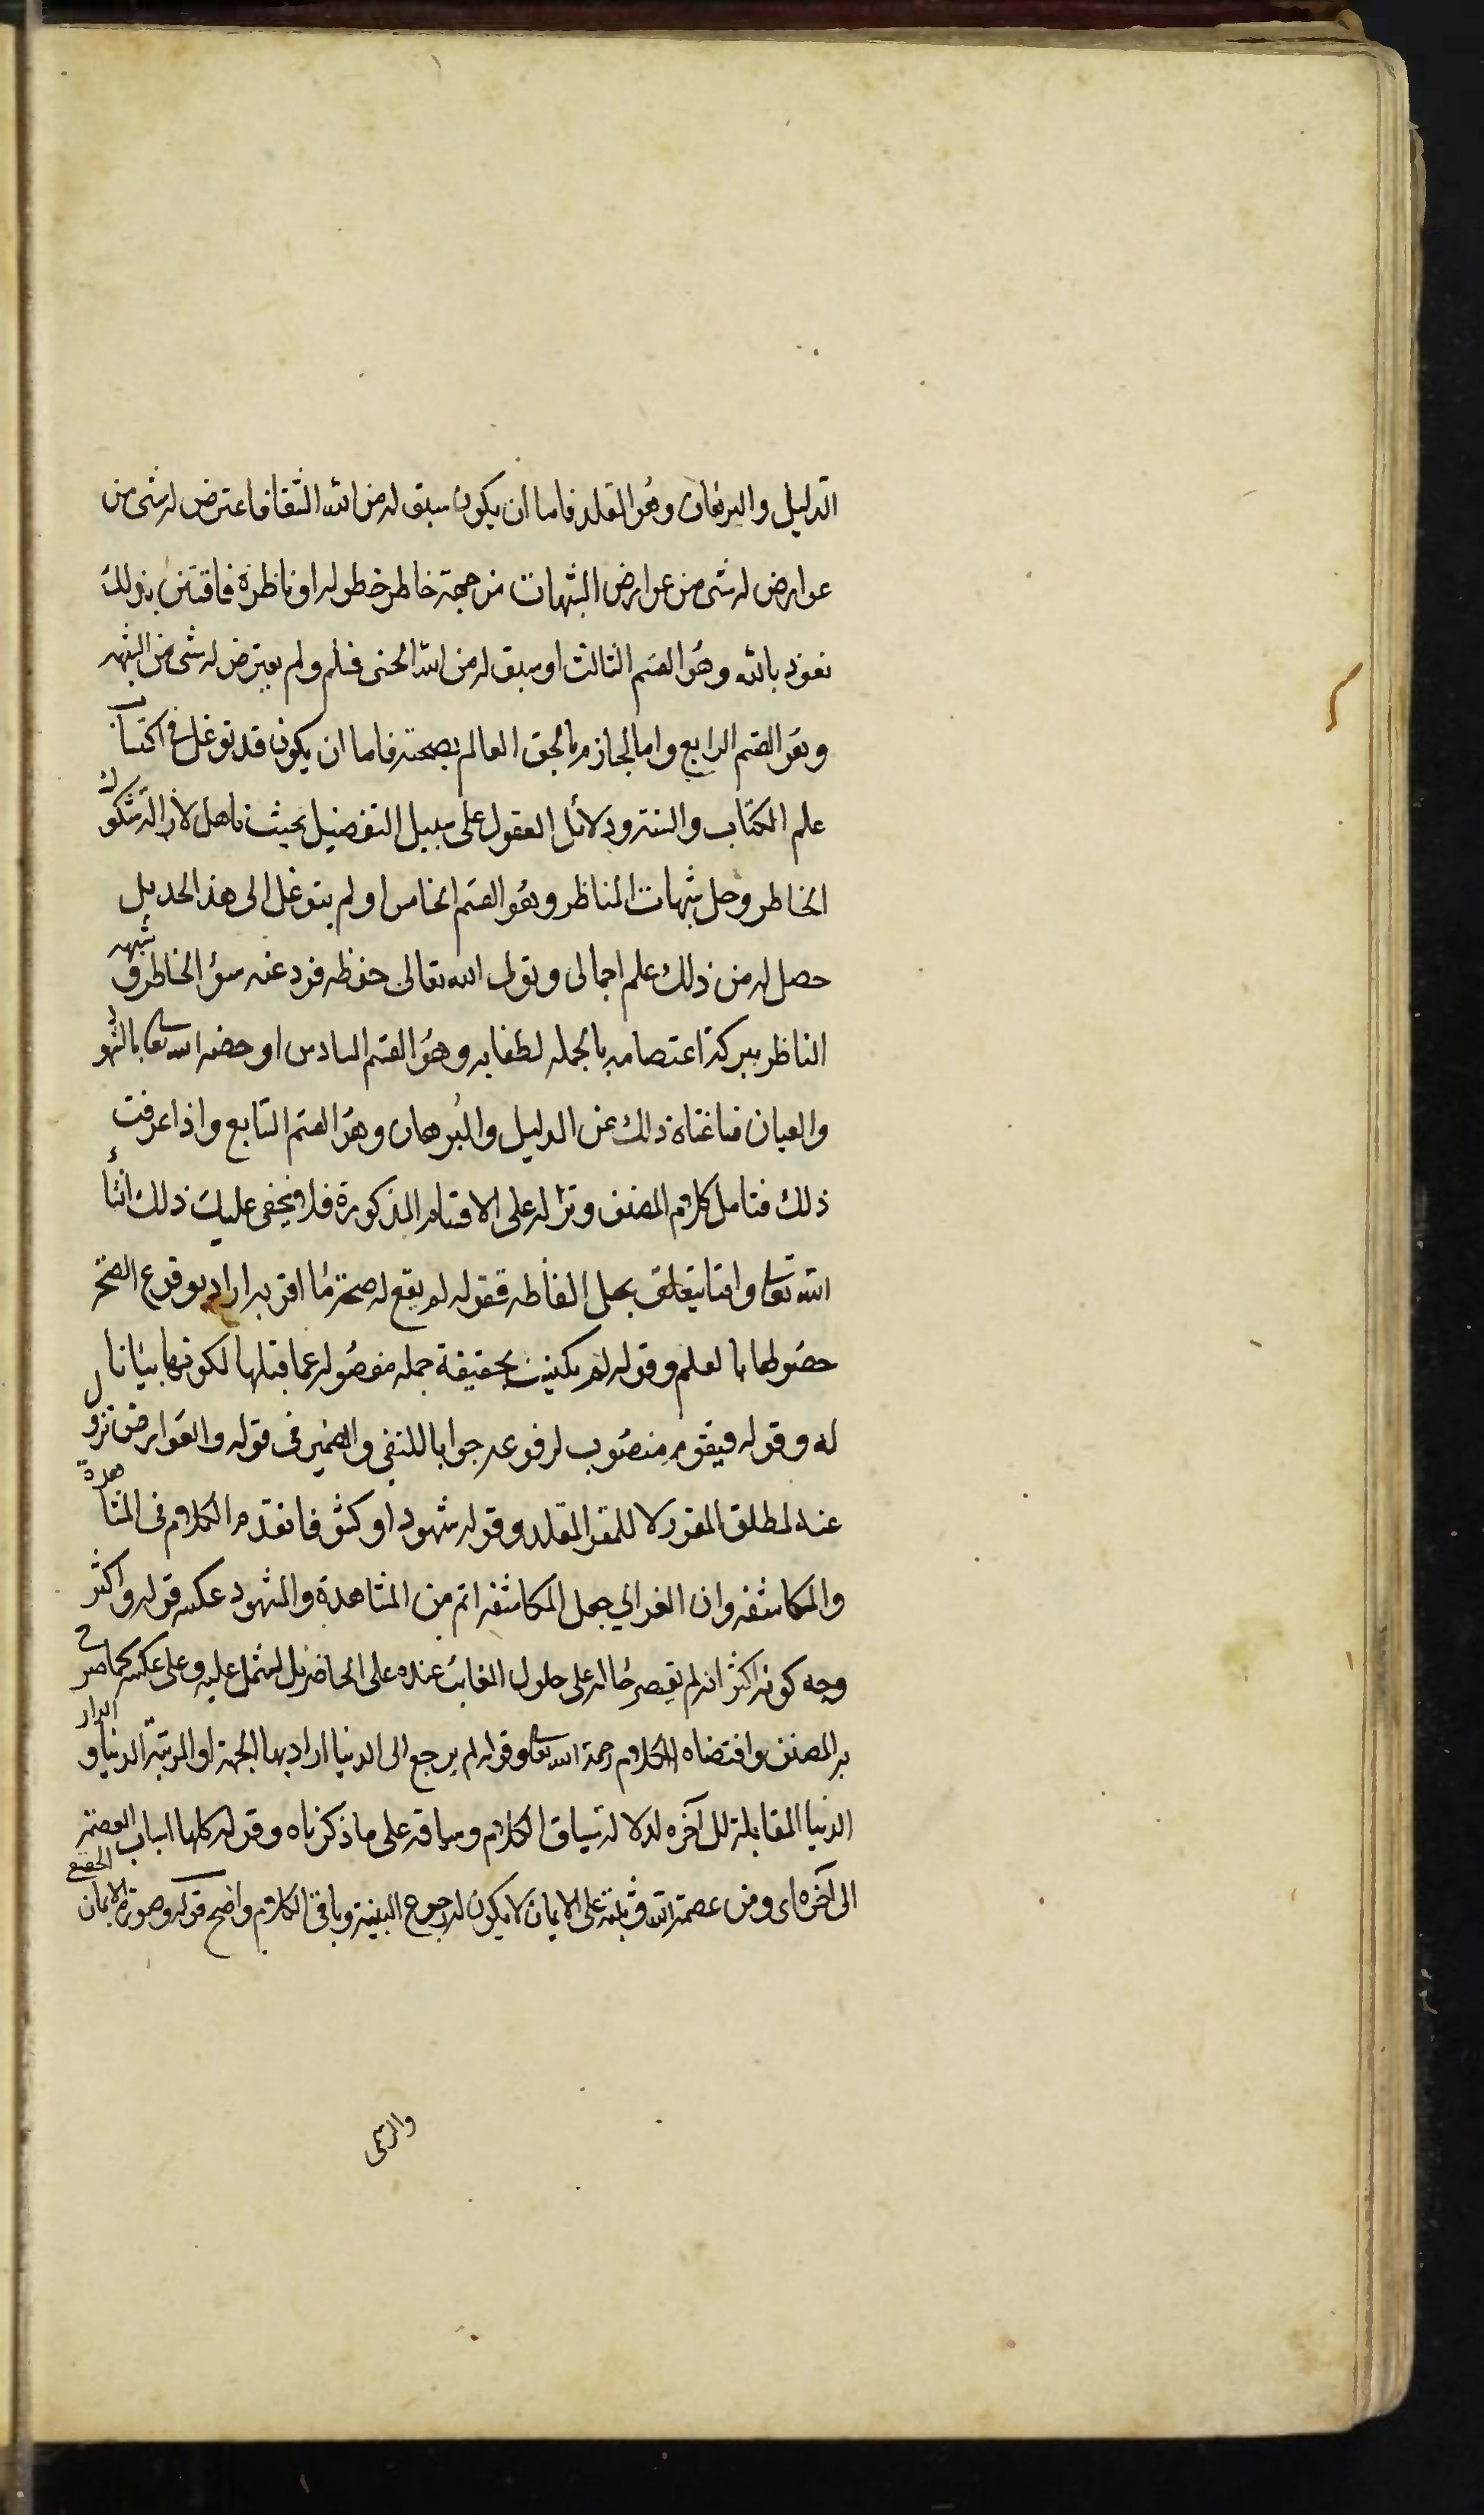 الدليل والبرهان وهو المقلد فاما ان يكون سبق له من الله الشقا فاعترض له شی من
عوارض له شی من عوارض الشبهات من جهة خاطر خطر له او ناظرة فافتتن بذلك
نعوذ بالله وهو القسم الثالث او سبق له من الله الحسنى فسلم ولم يعترض له شی من الشبهه
وهو القسم الرابع واما الجازم بالحق العالم بصحته فاما ان يكون قد توغل فی اكتساب
علم الكتاب والسنة ودلائل العقول على سبيل التفصيل بحيث تاهل لازالة شكوك
الخاطر وحل شبهات المناظر وهو القسم الخامس او لم يتوغل الى هذا الحد بل
حصل له من ذلك علم اجمالی وتولى الله تعالى حفظه فرد عنه سؤ الخاطر وشبهه
الناظر ببركة اعتصامه بالجمله لطفا به وهو القسم السادس او خصه الله تعا بالشهود
والعيان فاغناه ذلك عن الدليل والبرهان وهو القسم السابع واذا عرفت
ذلك فتامل كلام المصنف ونزله على الاقسام المذكورة فلا يخفى عليك ذلك انشاء
الله تعا واما يتعلق بحل الفاظه فقوله لم يقع له صحة ما اقر به اراد بوقوع الصحة
حصولها بالعلم وقوله لم يكن بحقيقة جمله مفصوله عما قبلها لكونها بيانا ل
له وقوله فيقوم منصوب لرفوعه جوابا للنفی والضمير فی قوله والعوارض تزول
عنه لمطلق المقر لا للمقر المقلد وقوله شهود او كشف فا تقدم الكلام فی المشاهدة
والمكاشفه وان الغزالی جعل المكاشفه اتم من المشاهدة والشهود عكسه قوله واكثر
وجه كونه اكثر انه لم يقصر حاله على حلول الغايب عنده على الحاضر بل يشمل عليه وعلى عكسه كما صرح
به المصنف واقتضاه الكلام رحمة الله تعا وقوله لم يرجع الى الدنيا اراد بها الجهة او المرتبة الدنيا والدار
الدنيا المقابلة للآخره لدلالة سياق الكلام وسباقه على ما ذكرناه وقوله كلها اسباب العصمة
الى آخره ای ومن عصمة الله وثبته على الايمان لا يكون له رجوع البتة وباقی الكلام واضح قوله وصورة الايمان الحقيقی
والرسمی